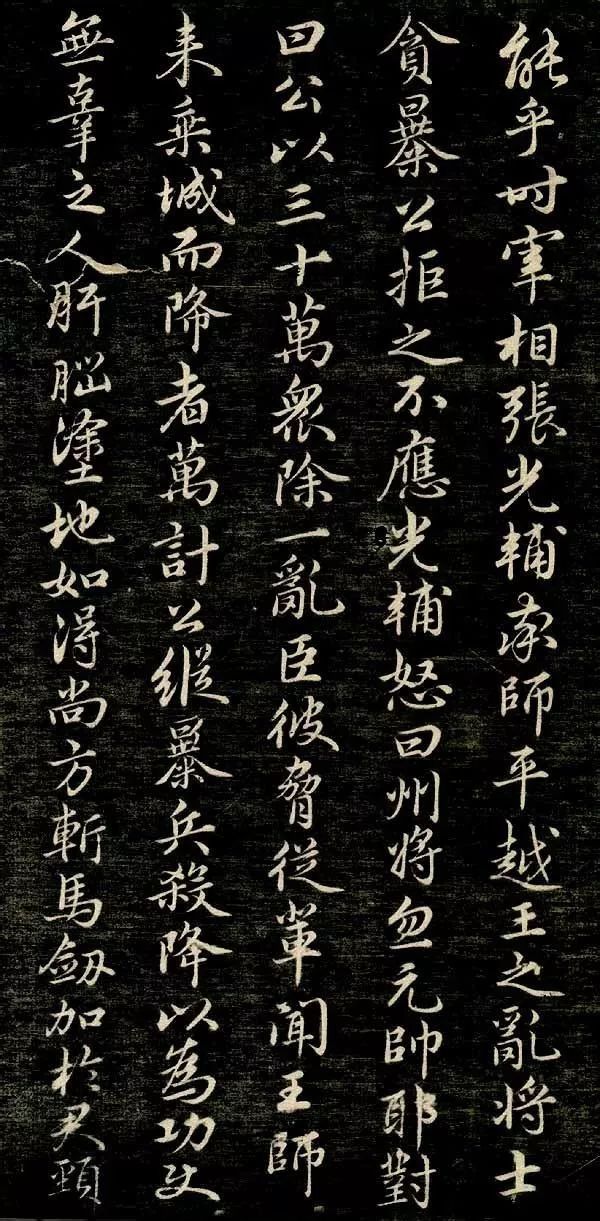 能乎时宰相張光輔率師平越王之亂将士
貪暴公拒之不應光輔怒曰州将忽元帥耶對
曰公以三十萬眾除一亂臣彼脅從輩聞王師
来乗城而降者萬計公縱暴兵殺降以為功使
無辜之人肝腦塗地如得尚方斬馬劔加於君頸